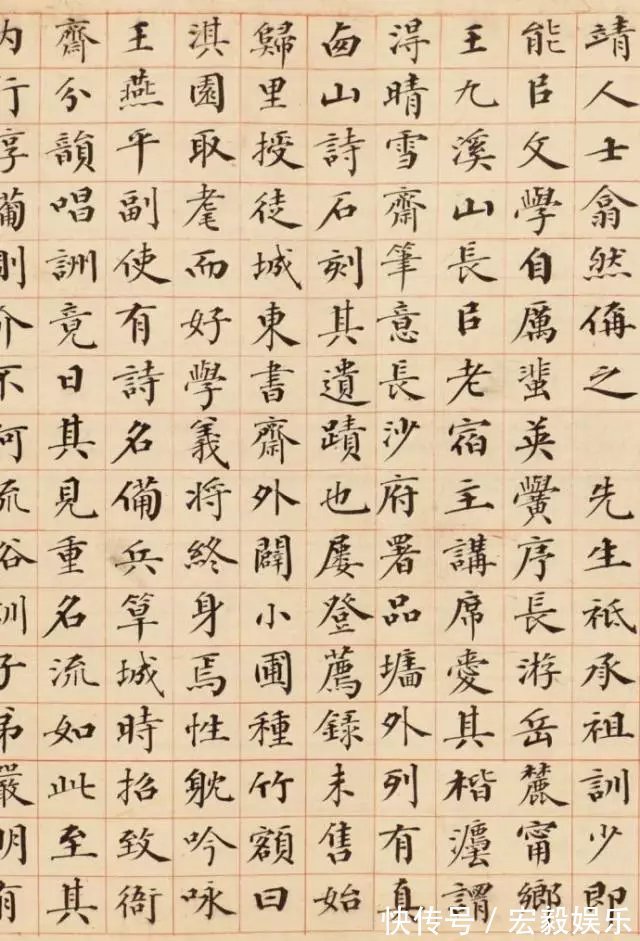 靖人士翕然偁之 先生祗承祖訓少即
能㠯文學自厲蜚英黌序長游岳麓甯鄉
王九溪山長㠯老宿主講席愛其楷灋謂
淂晴雪齋筆意長沙府署品墻外列有真
卥山詩石刻其遺蹟也屡登薦錄未售始
歸里授徒城東書齋外闢小圃種竹額曰
淇園取耄而好學義將終身焉性躭吟咏
王燕平副使有詩名備兵筸城時招致衙
齋分韻唱詶竟日其見重名流如此至其
内行則介不流俗訓子弟嚴明有
快传号/宏毅娱乐